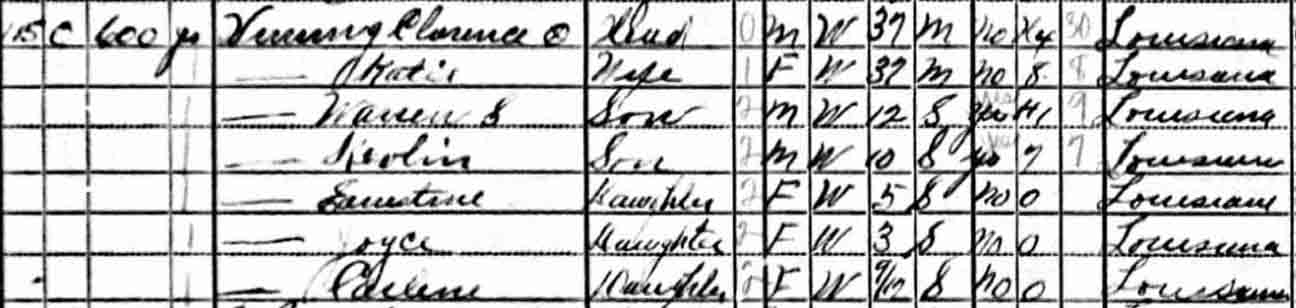 115 C 600 yes Vining Clarence O Head 0 M W 37 M No H4 30 Louisiana
— Katie Wife 1 F W 37 M No 8 8 Louisiana
— Warren S Son 2 M W 12 S Yes H1 9 Louisiana
— Son 2 M W 10 S Yes 7 7 Louisiana
— Earnestine Daughter 2 F W 5 S No 0 Louisiana
— Joyce Daughter 2 F W 3 S No 0 Louisiana
— Earlene Daughter 2 F W 9/12 S No 0 Louisiana